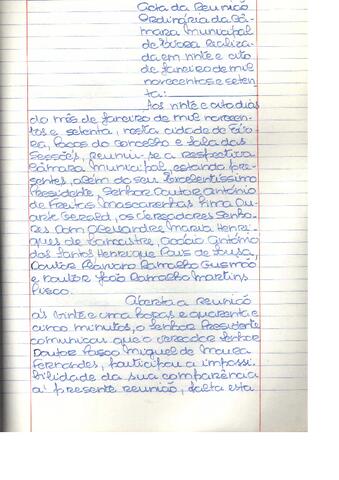 Acta da Reunião
Ordinária da Câ-
mara Municipal
de Évora realiza-
da em vinte e oito
de Janeiro de mil
novecentos e seten-
ta:
Aos vinte e oito dias
do mês de Janeiro de mil novecen-
tos e setenta, nesta cidade de Évo-
ra, Paços do Concelho e Sala das
Sessões, reuniu-se a respectiva
Câmara Municipal, estando pre-
sentes, além do seu Excelentíssimo
Presidente, Senhor Doutor António
de Freitas Mascarenhas Lima Du-
arte Gerald, os Vereadores Senho-
res Dom Alexandre Maria Henri-
ques de Lancastre, António
dos Santos Henrique Pais de Sousa,
Doutor Ramalho Gusmão
e Doutor João Ramalho Martins
Aberta a reunião
às vinte e uma horas e quarenta e
cinco minutos, o Senhor Presidente
comunicou que o Vereador Senhor
Doutor Vasco Miguel de Moura
Fernandes, participou a impossi-
bilidade da sua comparência
à presente reunião, falta esta